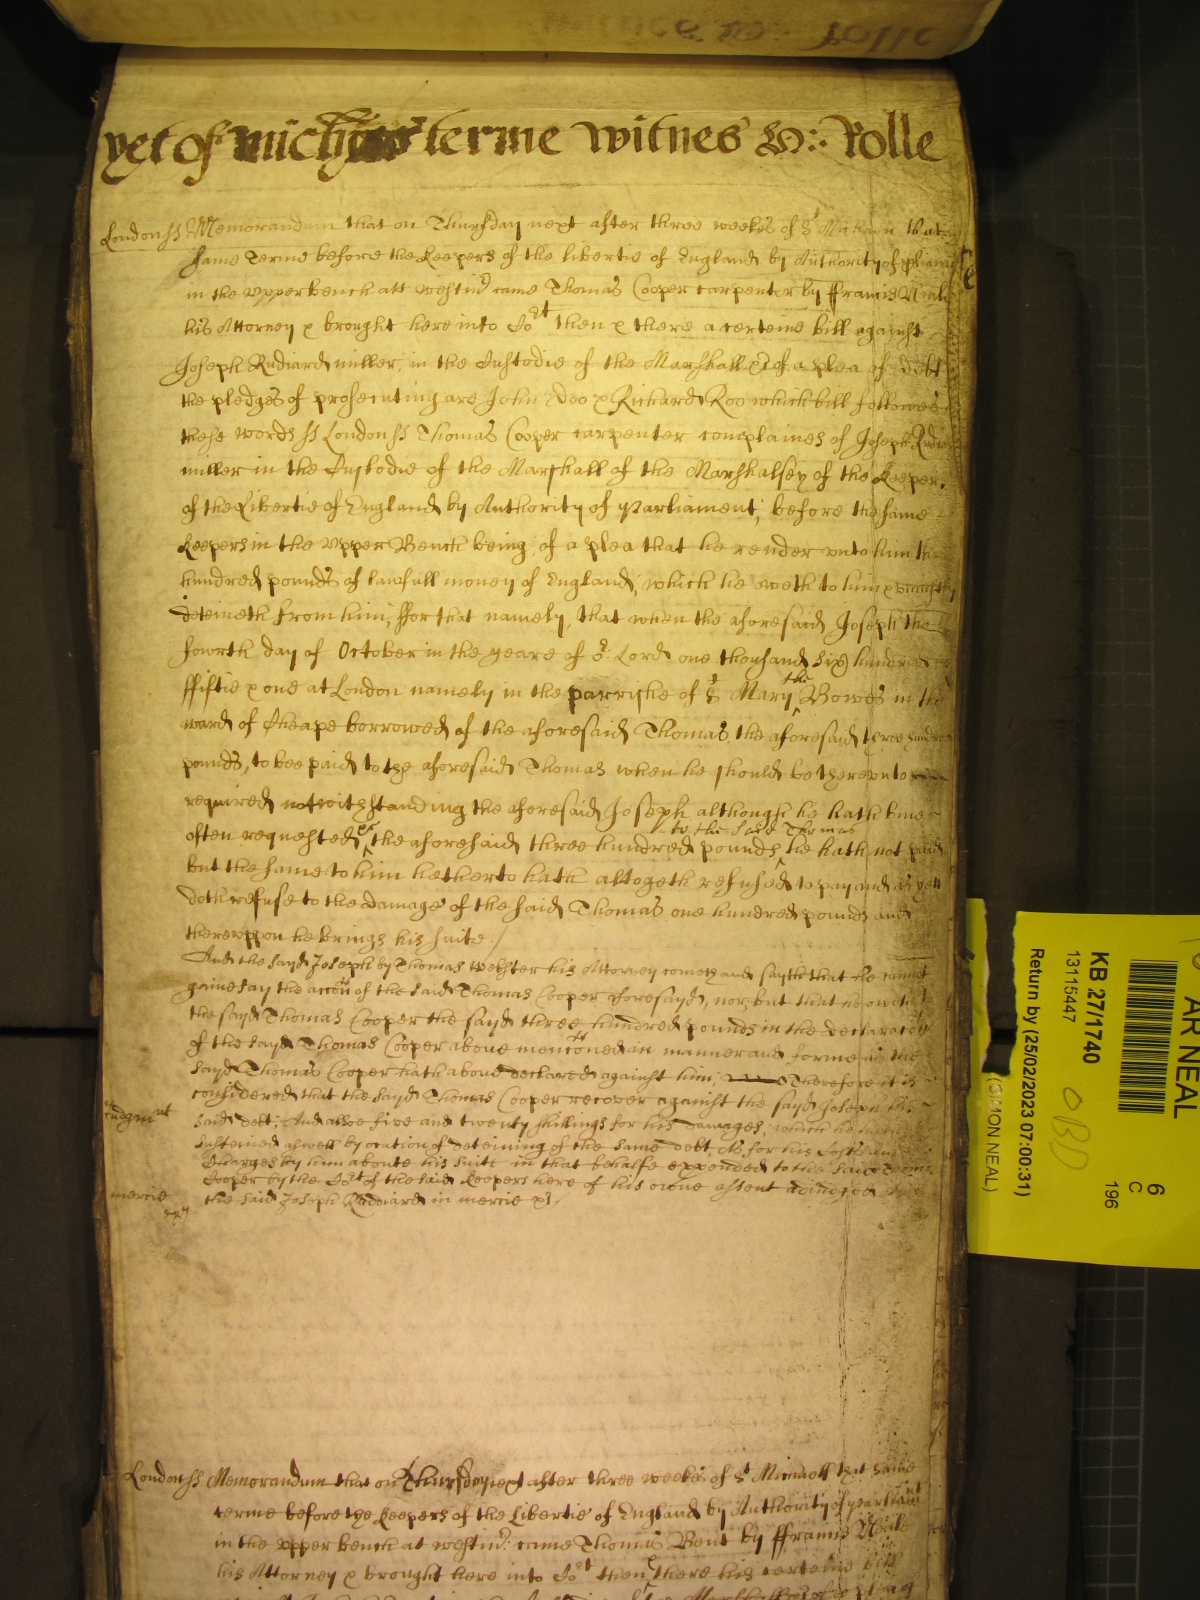 yet of Mich̃as terme witnes H: Rolle
London ss Memorandum that on Thursday next after three weekes of St Michaell that
same Terme before the Keepers of the libertie of England by Authority of
in the vpper bench att westmr came Thomas Cooper carpenter by ffrancis
his Attorney & brought here into Cort then & there a certeine bill against
Joseph Rudiard miller, in the Custodie of the Marshall &c of a plea of debt
the pledges of prosecuting are John Doo & Richard Roo which bill followes
these words ss London ss Thomas Cooper carpenter complaines of Joseph
miller in the Custodie of the Marshall of the Marshalsey of the Keepers
of the Libertie of England by Authority of Parliament, before the same
Keepers in the vpper Bench being, of a plea that he render vnto him
hundred pounds of lawfull money of England, which he oweth to him &
deteineth from him, ffor that namely, that when the aforesaid Joseph the
fowrth day of October in the yeare of or Lord one thousand six hundred
ffiftie & one at London namely in the parrishe of St Mary the Bowes in the
ward of Cheape borrowed of the aforesaid Thomas, the aforesaid three hundred
pounds, to bee paid to the aforesaid Thomas when he should be therevnto
required notwithstanding the aforesaid Joseph although he hath
to the said Thomas
often requested the aforesaid three hundred pounds he hath not paid
but the same to him hetherto hath altogeth refused to pay and as yett
doth refuse to the damage of the said Thomas one hundred pounds and
therevppon he brings his suite /
And the sayd Joseph by Thomas Webster his Attorney cometh and sayth that he cannot
gainesay the accon of the said Thomas Cooper aforesayd, nor but that he oweth
the sayd Thomas Cooper the sayd three hundred pounds in the declaracon
of the sayd Thomas Cooper above menconed in manner and forme as the
sayd Thomas Cooper hath above declared against him, Therefore it is
considered that the sayd Thomas Cooper recover against the sayd Joseph his
Judgmt
said debt, And alsoe five and twenty shillings for his damages, which he
susteined aswell by occation of deteining of the same debt, As for his Costs and
Charges by him aboute his suite in that behalfe expended to the said Thomas
Cooper by the Cort of the said Keepers here of his owne assent adiudged
mercie
the said Joseph Rudiard in mercie &c
London ss Memorandum that on Thursday next after three weekes of St Michaell that same
terme before the Keepers of the Libertie of England by Authority of parliamt
in the vpper bench at westmr: came Thomas Bent by ffrancis Neile
his Attorney & brought here into Cort then & there his certeine bill
AR NEAL
6
C
196
KB 27/1740
13115447
Return by (25/02/2023 07:00:31)
(SIMON NEAL)
OBD